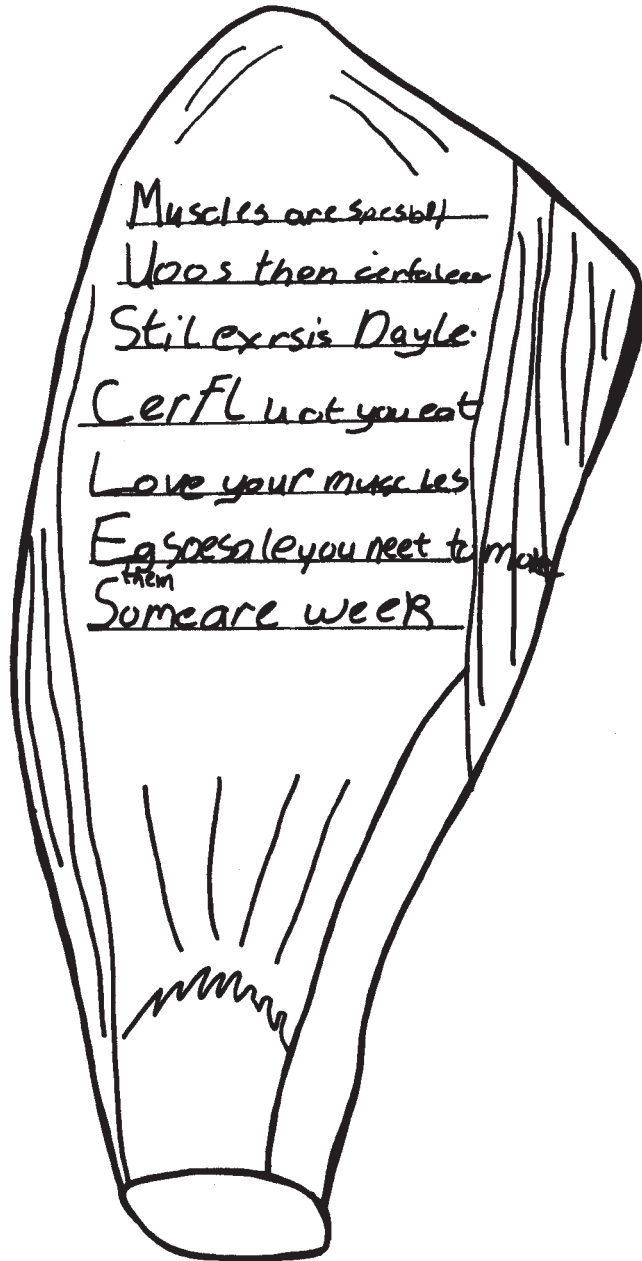 Muscles are Spesball
Uoos then cerfaleee
StiL exrsis Dayle.
CerFL uat you eat
Love your muscles
Eg spesale you neet to move
them
Some are week